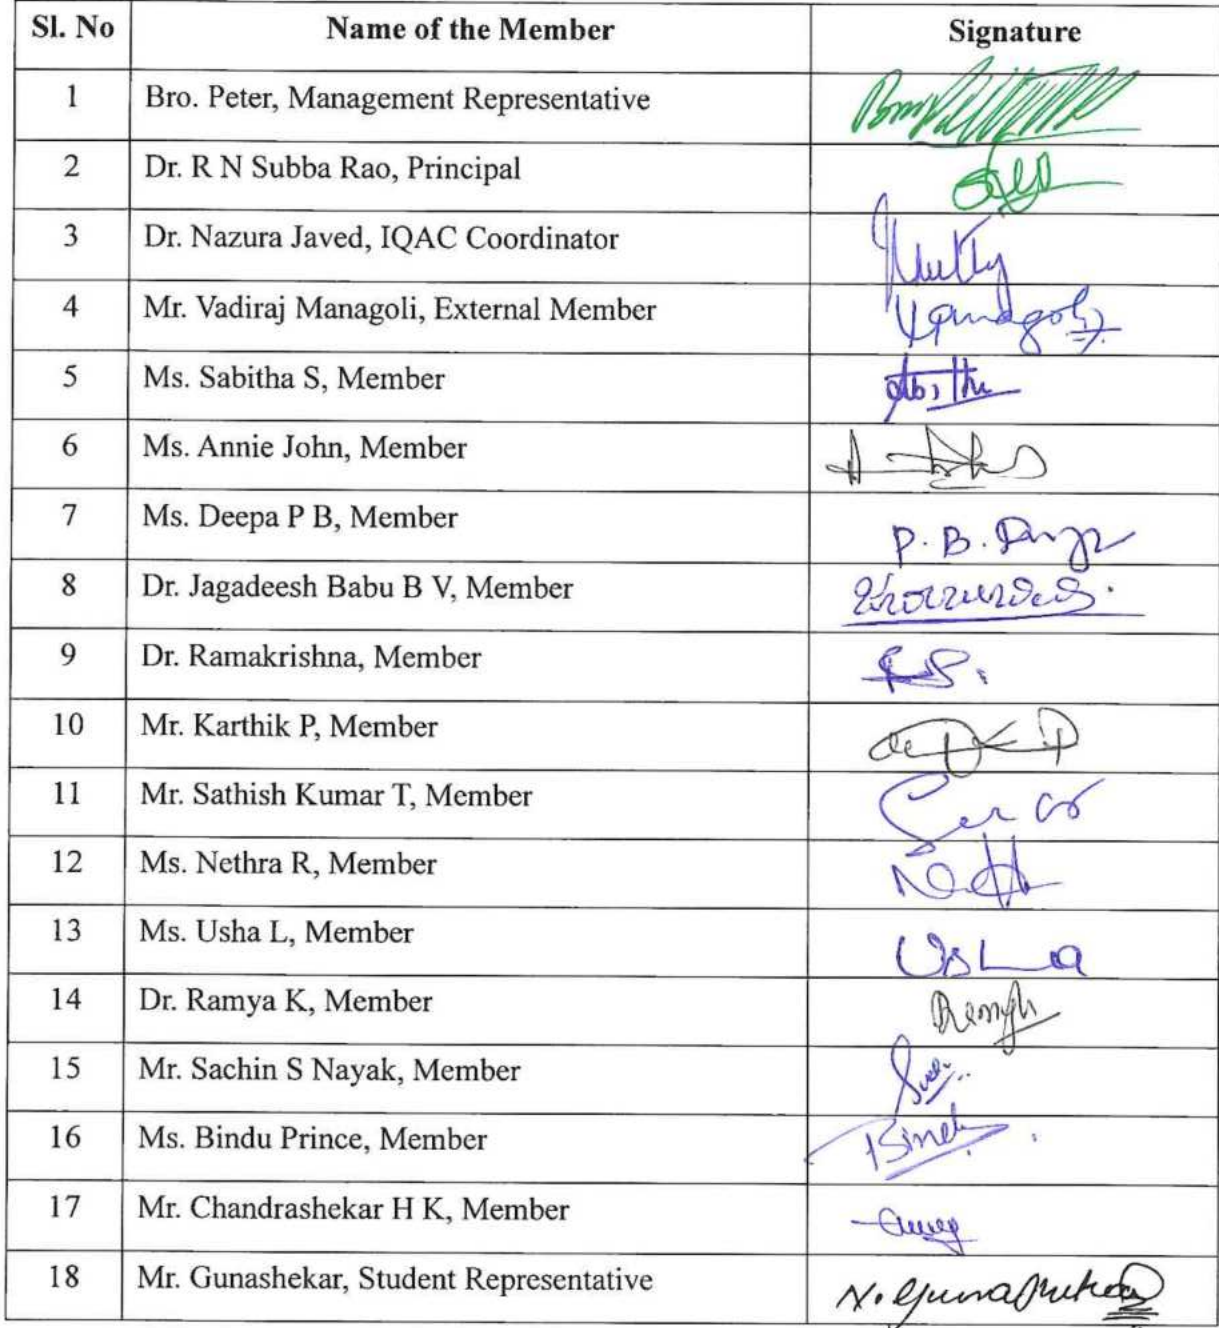 Sl. No Name of the Member Signature
1 Bro. Peter, Management Representative
2 Dr. R N Subba Rao, Principal
3 Dr. Nazura Javed, IQAC Coordinator
4 Mr. Vadiraj Managoli, External Member
5 Ms. Sabitha S, Member
6 Ms. Annie John, Member
7 Ms. Deepa P B, Member P. B.
8 Dr. Jagadeesh Babu B V, Member
9 Dr. Ramakrishna, Member
10 Mr. Karthik P, Member
11 Mr. Sathish Kumar T, Member
12 Ms. Nethra R, Member
13 Ms. Usha L, Member Usha
14 Dr. Ramya K, Member
15 Mr. Sachin S Nayak, Member
16 Ms. Bindu Prince, Member
17 Mr. Chandrashekar H K, Member
18 Mr. Gunashekar, Student Representative